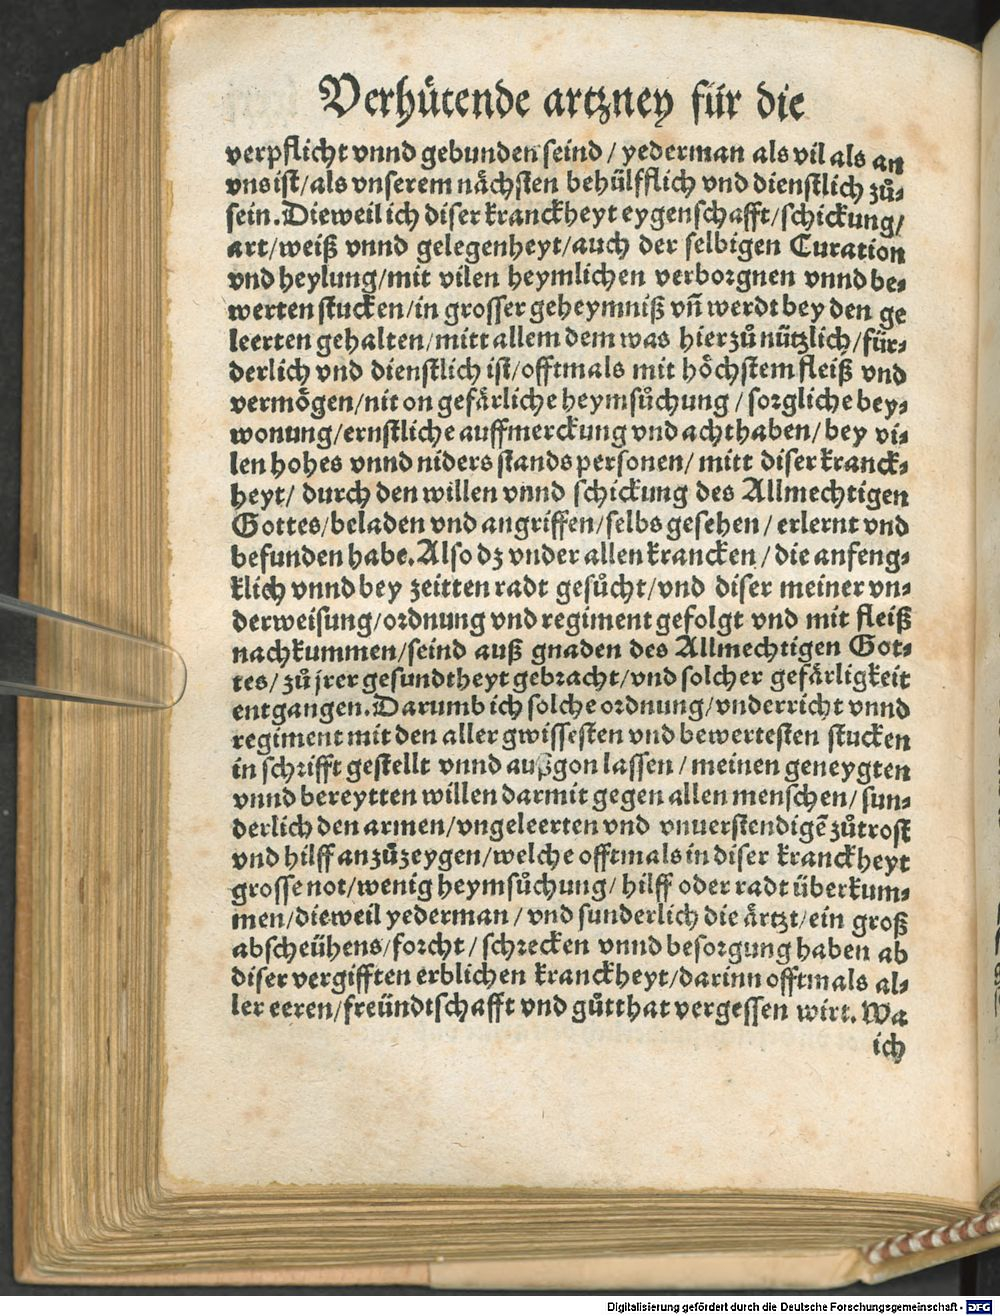 Verhütende artzney für die
verpflicht vnnd gebunden seind / yederman als vil als an
vns ist/als vnserem nächsten behülfflich vnd dienstlich zů-
sein. Dieweil ich diser kranckheyt eygenschafft/schickung/
art/weiß vnnd gelegenheyt/auch der selbigen Curation
vnd heylung/mit vilen heymlichen verborgnen vnnd be-
werten stucken/in grosser geheymniß vñ werdt bey den ge
leerten gehalten/mitt allem dem was hierzů nützlich/für-
derlich vnd dienstlich ist/offtmals mit höchstem fleiß vnd
vermögen/nit on gefärliche heymsůchung / sorgliche bey-
wonung/ernstliche auffmerckung vnd achthaben/ bey vi-
len hohes vnnd niders stands personen/ mitt diser kranck-
heyt/ durch den willen vnnd schickung des Allmechtigen
Gottes/beladen vnd angriffen/selbs gesehen / erlernt vnd
befunden habe. Also dz vnder allen krancken / die anfeng-
klich vnnd bey zeitten radt gesůcht/vnd diser meiner vn-
derweisung/ordnung vnd regiment gefolgt vnd mit fleiß
nachkummen/seind auß gnaden des Allmechtigen Got-
tes/ zů jrer gesundtheyt gebracht/vnd solcher gefärligkeit
entgangen. Darumb ich solche ordnung/vnderricht vnnd
regiment mit den aller gwissesten vnd bewertesten stucken
in schrifft gestellt vnnd außgon lassen / meinen geneygten
vnnd bereytten willen darmit gegen allen menschen/ sun-
derlich den armen/vngeleerten vnd vnuerstendigẽ zůtrost
vnd hilff anzůzeygen/welche offtmals in diser kranckheyt
grosse not/wenig heymsůchung/ hilff oder radt überkum-
men/dieweil yederman / vnd sunderlich die ärtzt/ein groß
abscheühens/forcht / schrecken vnnd besorgung haben ab
diser vergifften erblichen kranckheyt/darinn offtmals al-
ler eeren/freündtschafft vnd gůtthat vergessen wirt. Wa
ich
Digitalisierung gefördert durch die Deutsche Forschungsgemeinschaft - DFG